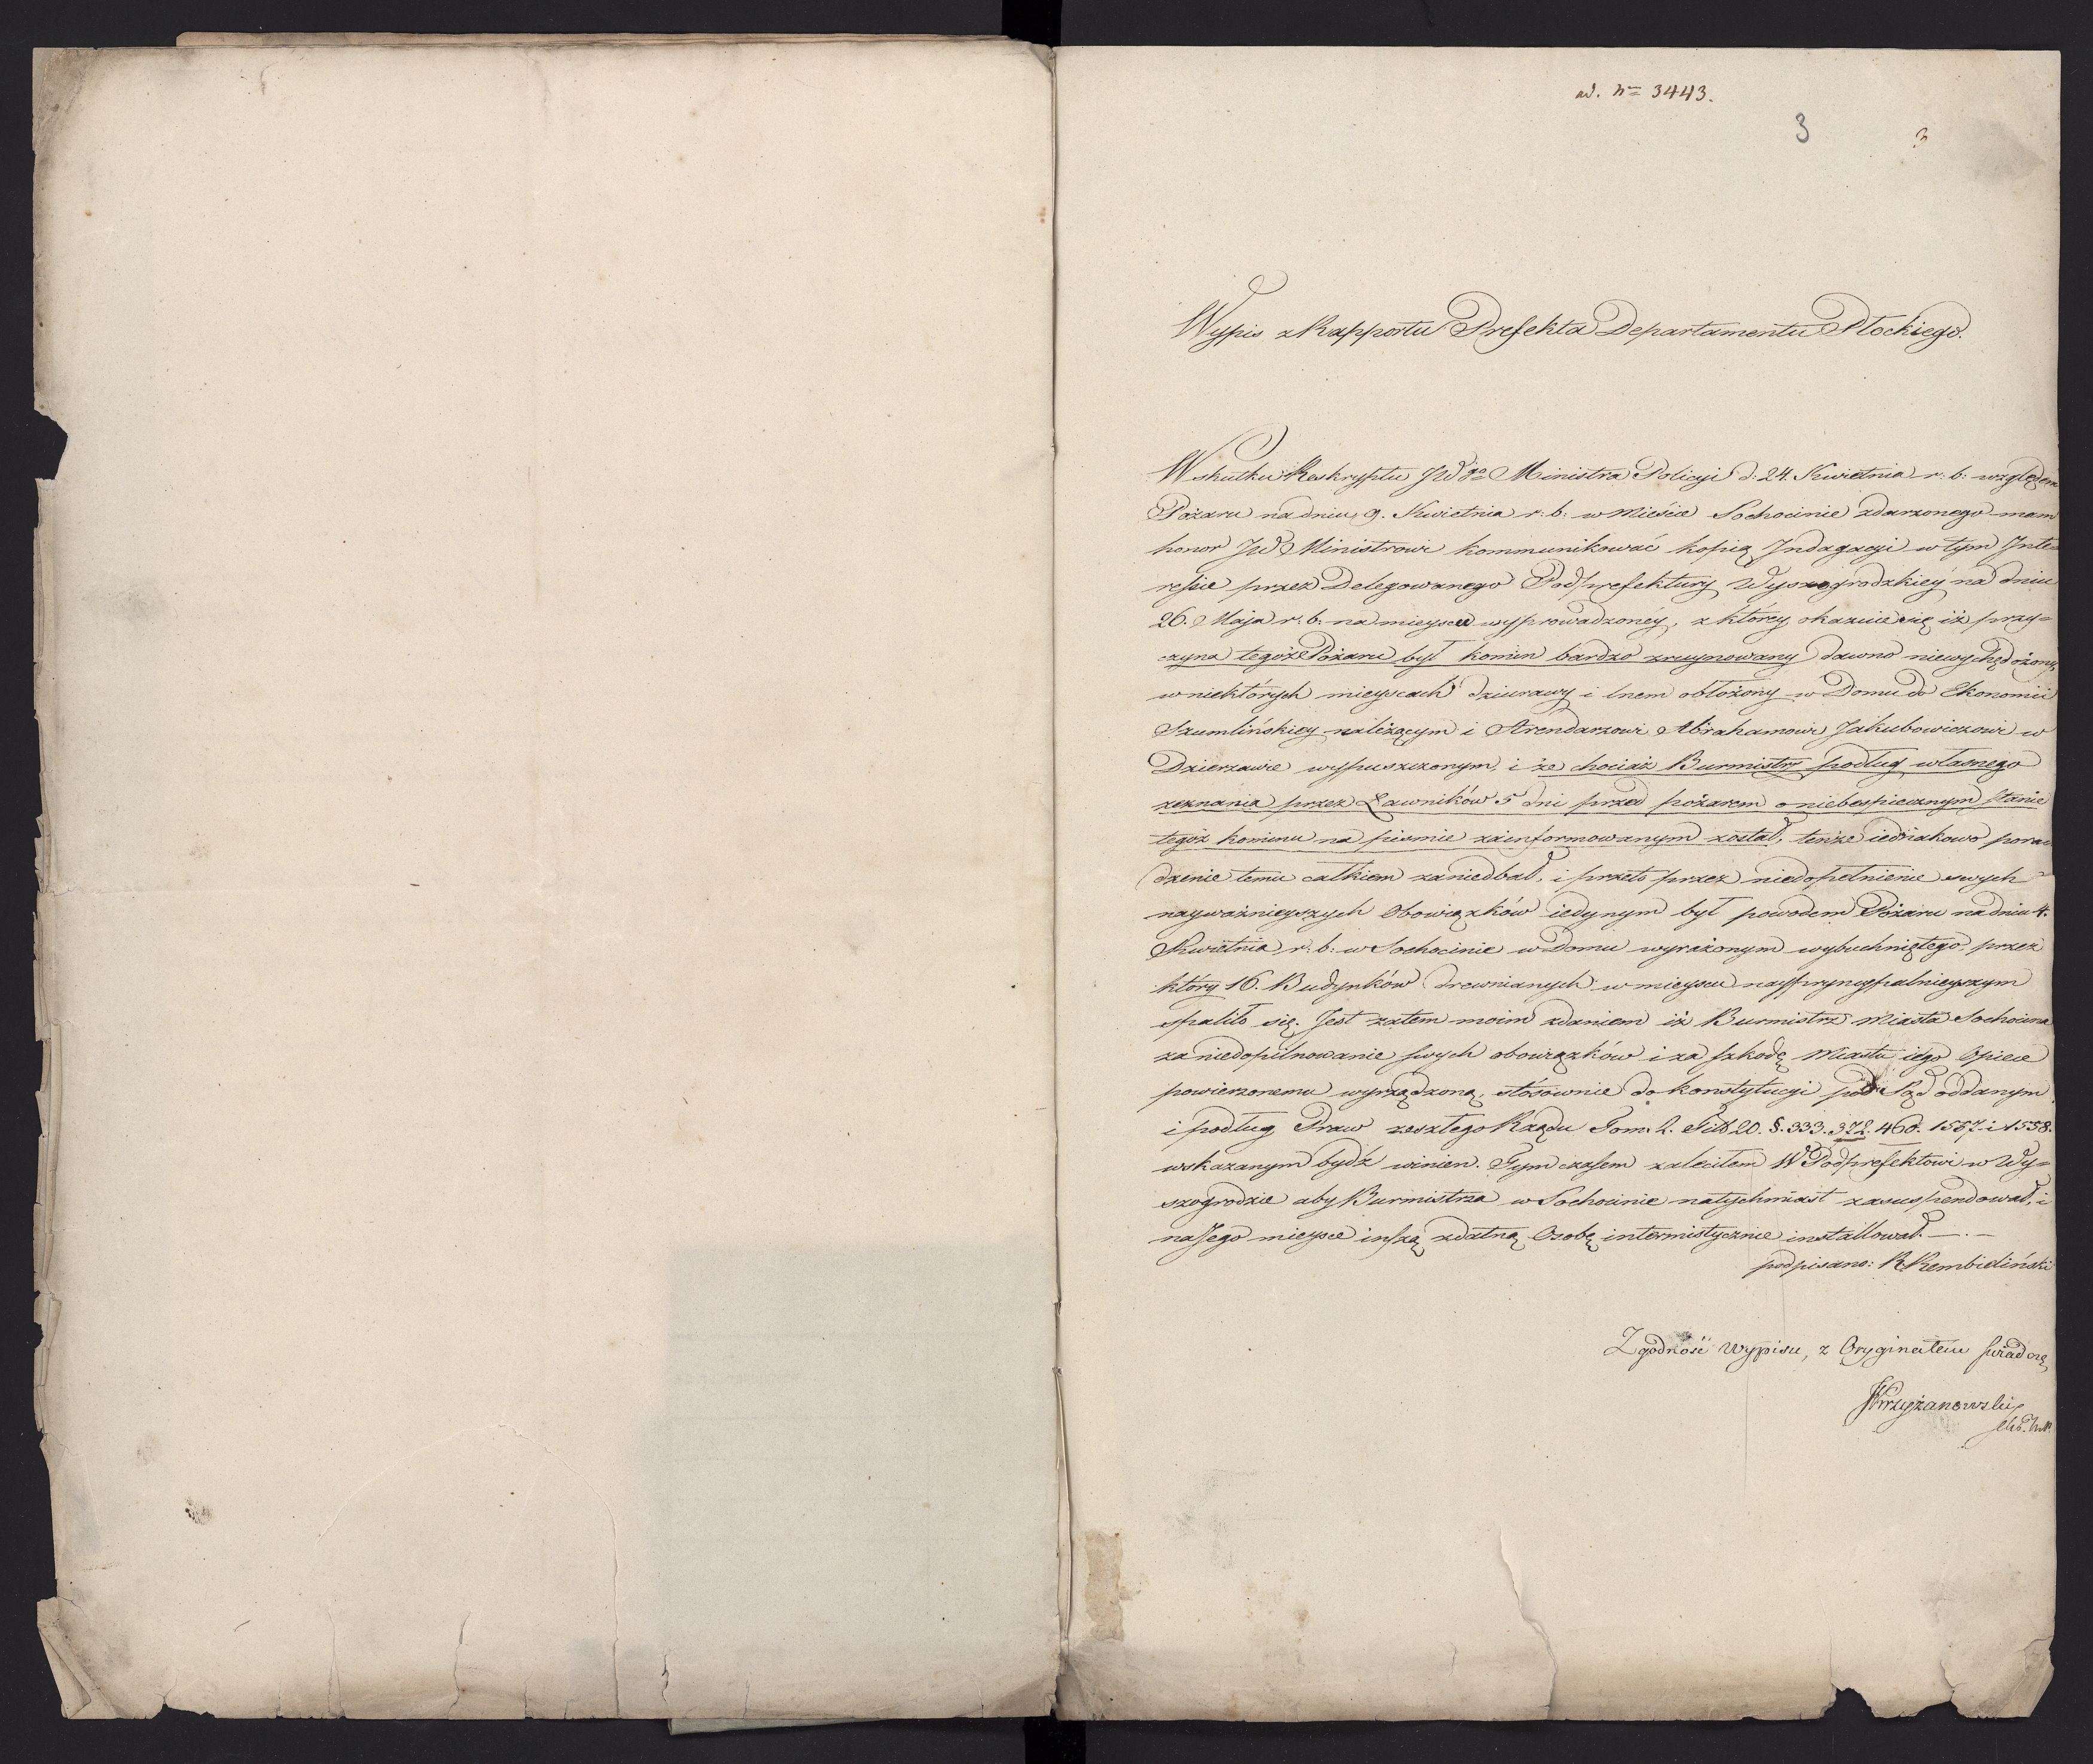 ad. Nro 3443.
3
3
Wypis z Rapportu Prefekta Departamentu Płockiego.
W skutku Reskryptu JWgo Ministra Policyi d: 24. Kwietnia r: b: względem
Pożaru na dniu 9. Kwietnia r: b: w Mieście Sochocinie zdarzonego mam
honor JW Ministrowi kommunikować kopią Indagacyi w tym Inte=
ressie przez Delegowanego Podprefektury Wyszogrodzkiey na dniu
26. Maja r: b: na mieysce wyprowadzonéy, z którey okazuie się iż przy=
czyna tegoże Pożaru był komin bardzo zruynowany dawno niewychędożony,
w niektórych mieyscach dziurawy i lnem obłożony w Domu do Ekonomii
Szumlińskiey należącym i Arendarzowi Abrahamowi Jakubowiczowi w
Dzierzawie wypuszczonym, i że chociaż Burmistr podług własnego
zeznania przez Ławników 5 dni przed pożarem o niebespiecznym stanie
tegóż kominu na piśmie zainformowanym został, tenże iednakowo porad
dzenie temu całkiem zaniedbał, i przeto przez niedopełnienie swych
nayważnieyszych Obowiązków iedynym był powodem Pożaru na dniu 4.
Kwietnia r: b: w Sochocinie w Domu wyrażonym wybuchniętego, przez
który 16. Budynków drewnianych w mieyscu naypryncypalnieyszym
spaliło się. Jest zatem moim zdaniem iż Burmistrz Miasta Sochocina
za niedopilnowanie swych obowiązków i za szkodę Miastu iego Opiece
powierzonemu wyrządzoną, stósownie do konstytucyi pod Sąd oddanym
i podług Praw zeszłego Rządu Tom: 2. Tit: 20. §. 333. 372. 460. 1557. i 1558.
wskazanym bydź winien. Tym czasem zaleciłem W Podprefektowi w Wy=
szogrodzie aby Burmistrza w Sochocinie natychmiast zasuspendował, i
na Jego mieysce inszą zdatną Osobę intermistycznie installował. —.—
podpisano: R Rembieliński
Zgodność Wypisu, z Oryginałem świadczę
JKrzyżanowski